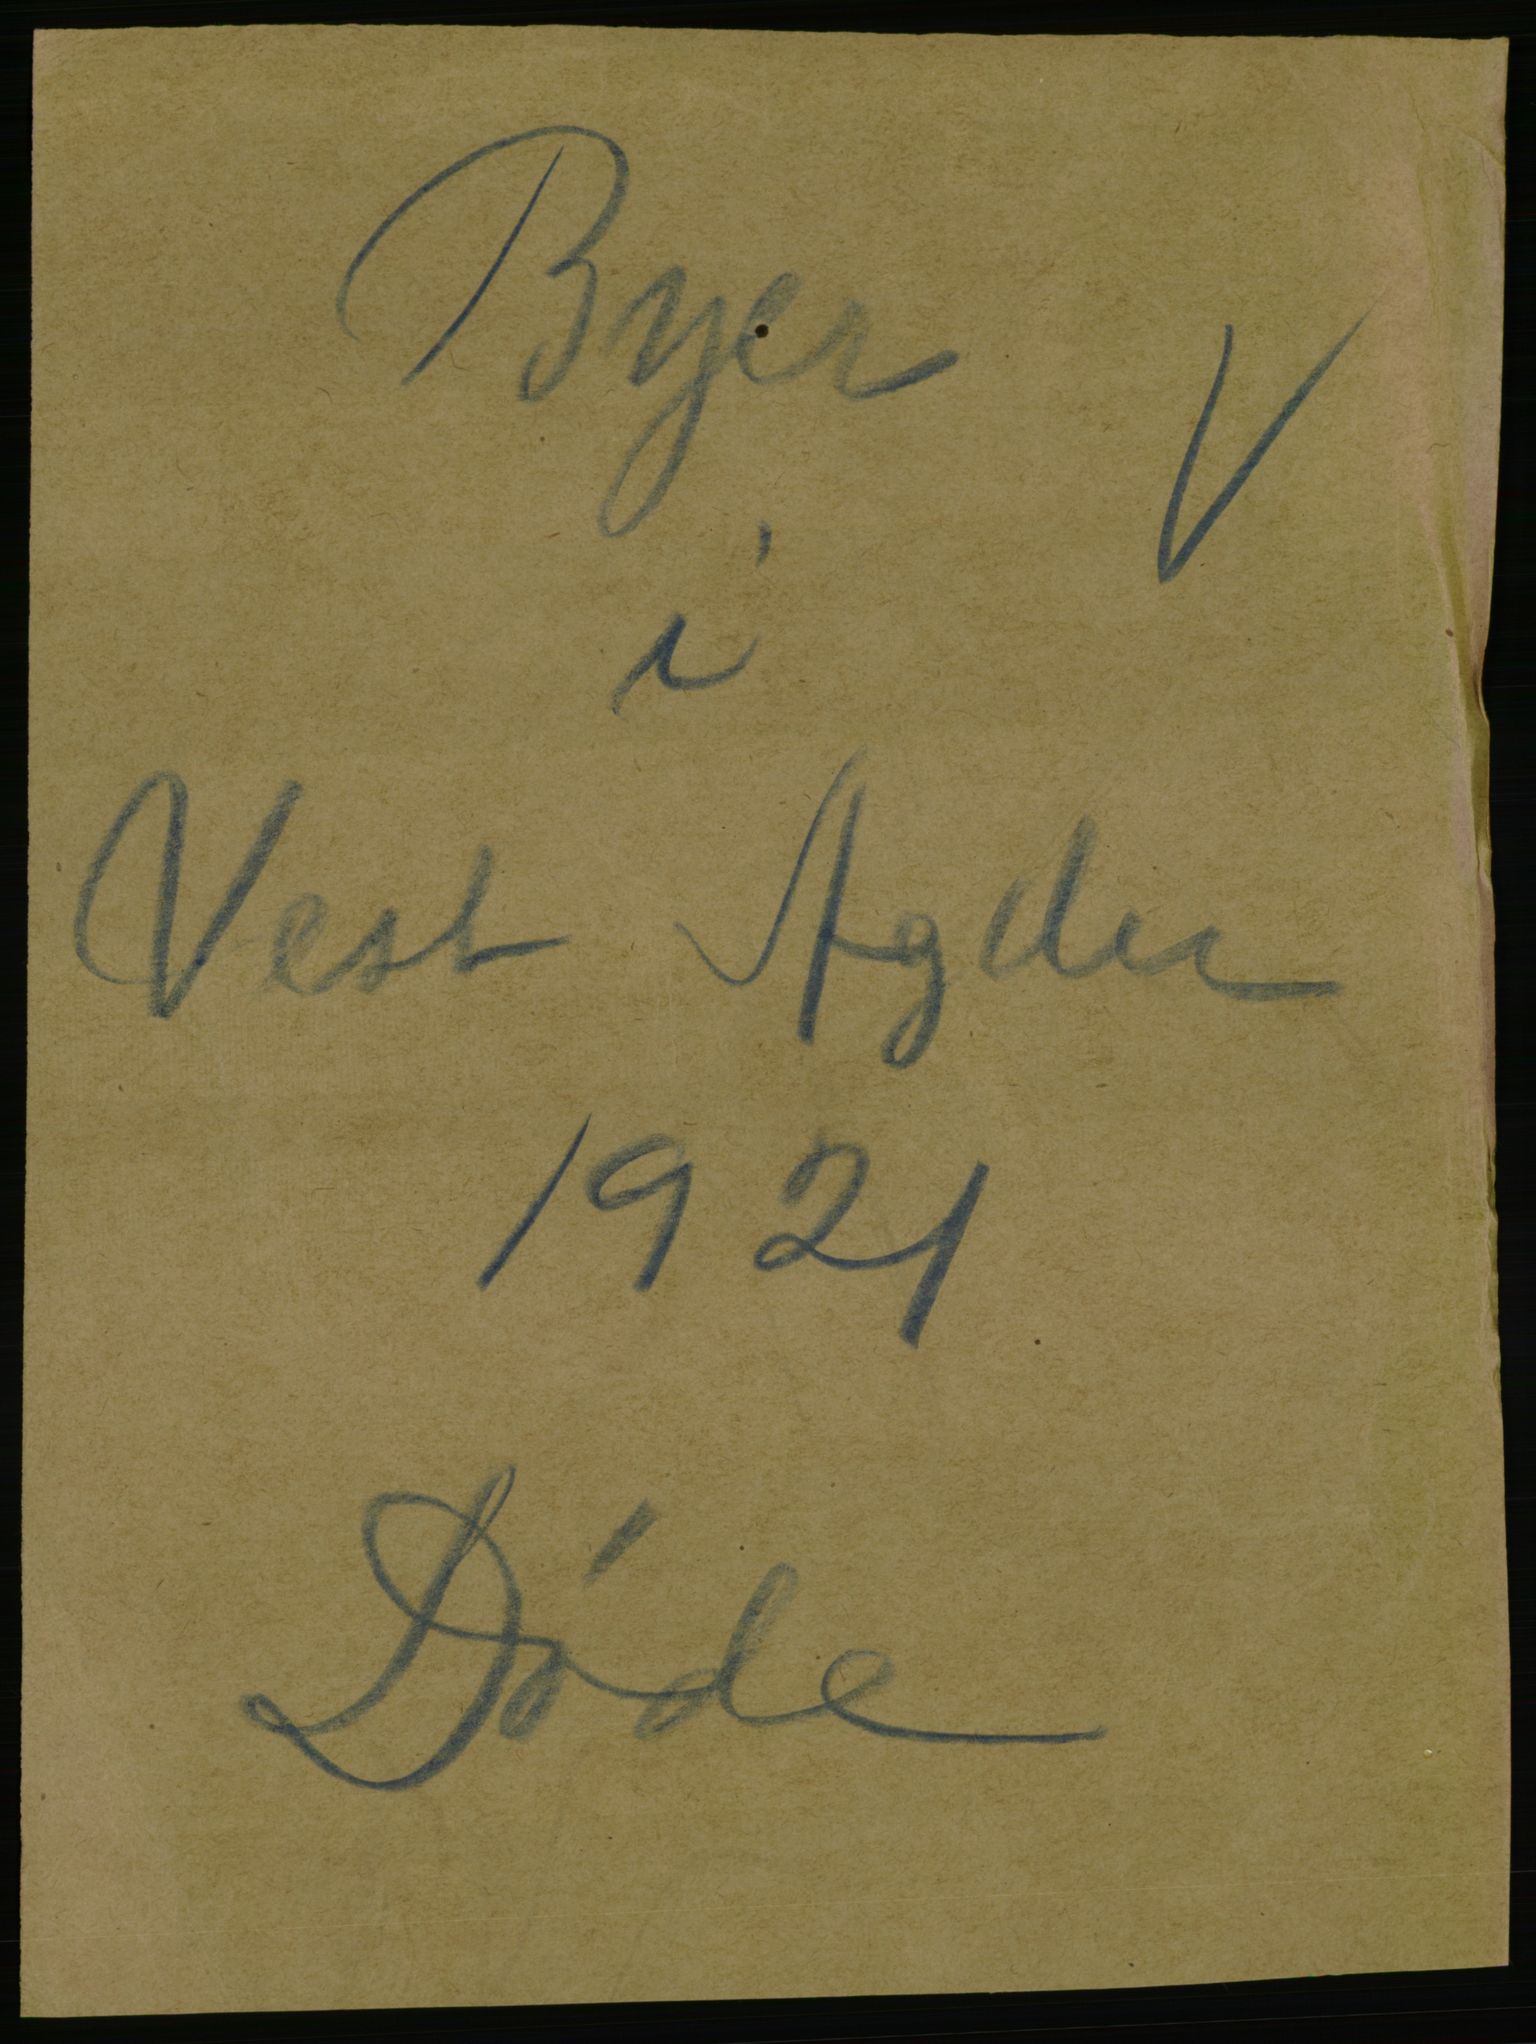 Byer
V
i
Vest Agder
1921
Døde